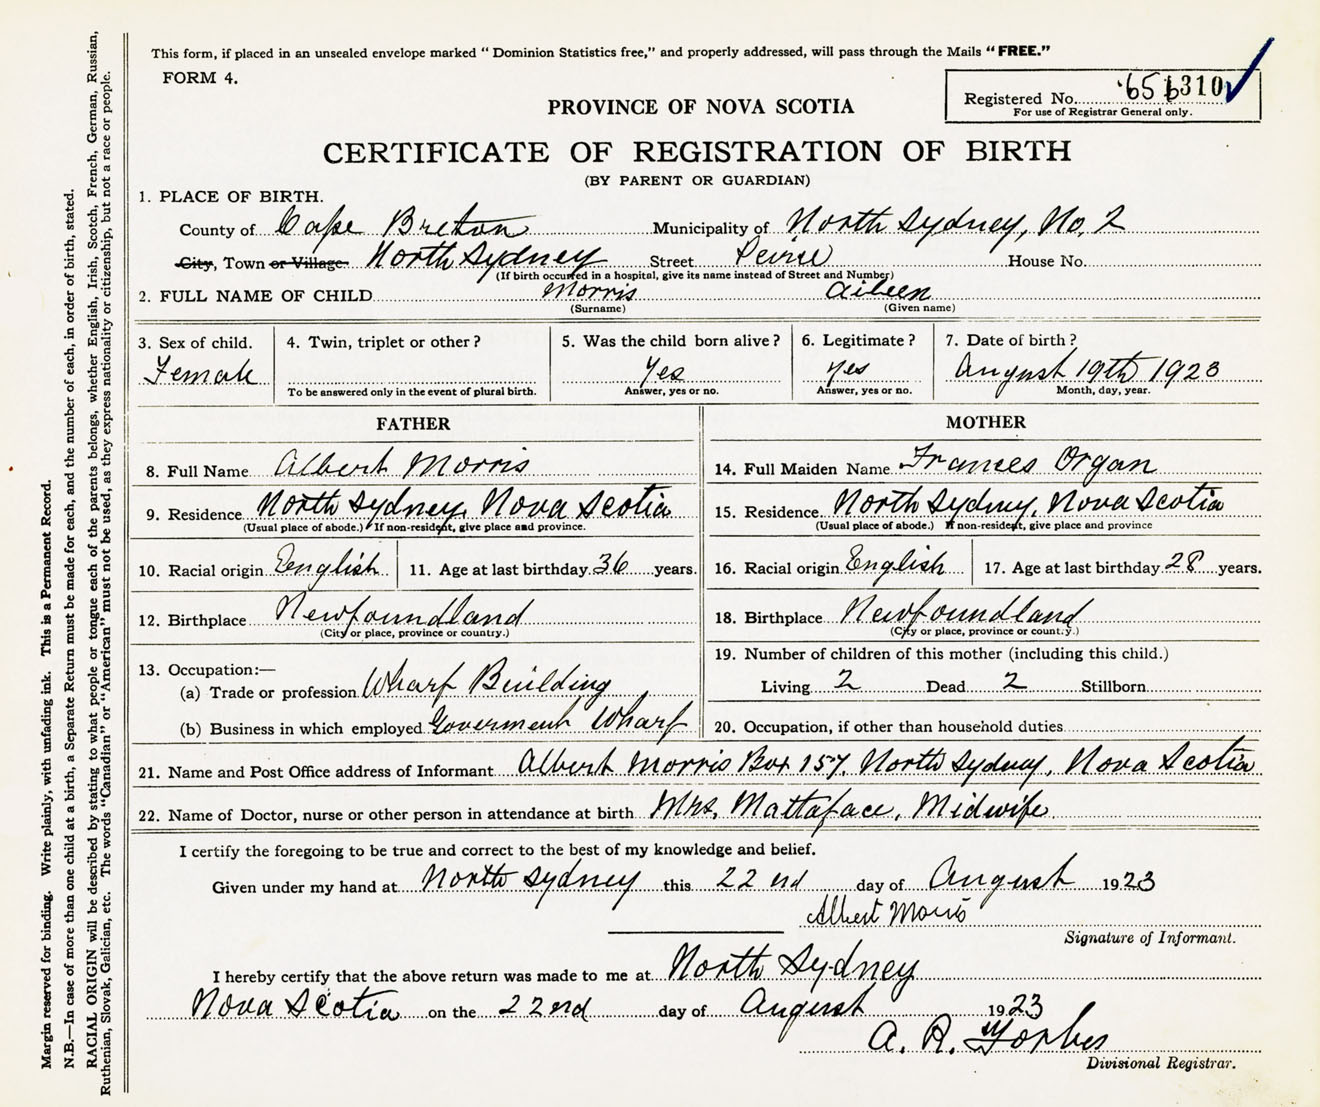 This form, if placed in an unsealed envelope marked "Dominion Statistics free," and properly addressed, will pass through the Mails "FREE."
FORM 4.
Registered No. 310
For use of Registrar General only.
PROVINCE OF NOVA SCOTIA
CERTIFICATE OF REGISTRATION OF BIRTH
(BY PARENT OR GUARDIAN)
1. PLACE OF BIRTH.
County of Cape Breton Municipality of North Sydney, No. 2
City, Town or Village North Sydney Street Peirie House No.
(If birth occurred in a hospital, give its name instead of Street and Number)
2. FULL NAME OF CHILD Morris Aileen
(Surname) (Given name)
3. Sex of child. 4. Twin, triplet or other? 5. Was the child born alive? 6. Legitimate? 7. Date of birth?
Female Yes Yes August 19th 1923
To be answered only in the event of plural birth. Answer, yes or no. Answer, yes or no. Month, day, year.
FATHER MOTHER
8. Full Name Albert Morris 14. Full Maiden Name Frances Organ
9. Residence North Sydney, Nova Scotia 15. Residence North Sydney, Nova Scotia
(Usual place of abode.) If non-resident, give place and province. (Usual place of abode.) If non-resident, give place and province
10. Racial origin English 11. Age at last birthday 36 years. 16. Racial origin English 17. Age at last birthday 28 years.
12. Birthplace Newfoundland 18. Birthplace Newfoundland
(City or place, province or country.) (City or place, province or country.)
13. Occupation:— 19. Number of children of this mother (including this child.)
(a) Trade or profession Wharf Building Living 2 Dead 2 Stillborn
(b) Business in which employed Goverment Wharf 20. Occupation, if other than household duties
21. Name and Post Office address of Informant Albert Morris Box 157, North Sydney, Nova Scotia
22. Name of Doctor, nurse or other person in attendance at birth Mrs. Mattaface, Midwife
I certify the foregoing to be true and correct to the best of my knowledge and belief.
Given under my hand at North Sydney this 22nd day of August 1923
Albert Morris
Signature of Informant.
I hereby certify that the above return was made to me at North Sydney
Nova Scotia on the 22nd day of August 1923
A. R. Forbes
Divisional Registrar.
Margin reserved for binding. Write plainly, with unfading ink. This is a Permanent Record.
N.B.—In case of more than one child at a birth, a Separate Return must be made for each, and the number of each, in order of birth, stated.
RACIAL ORIGIN will be described by stating to what people or tongue each of the parents belongs, whether English, Irish, Scotch, French, German, Russian,
Ruthenian, Slovak, Galician, etc. The words "Canadian" or "American" must not be used, as they express nationality or citizenship, but not a race or people.